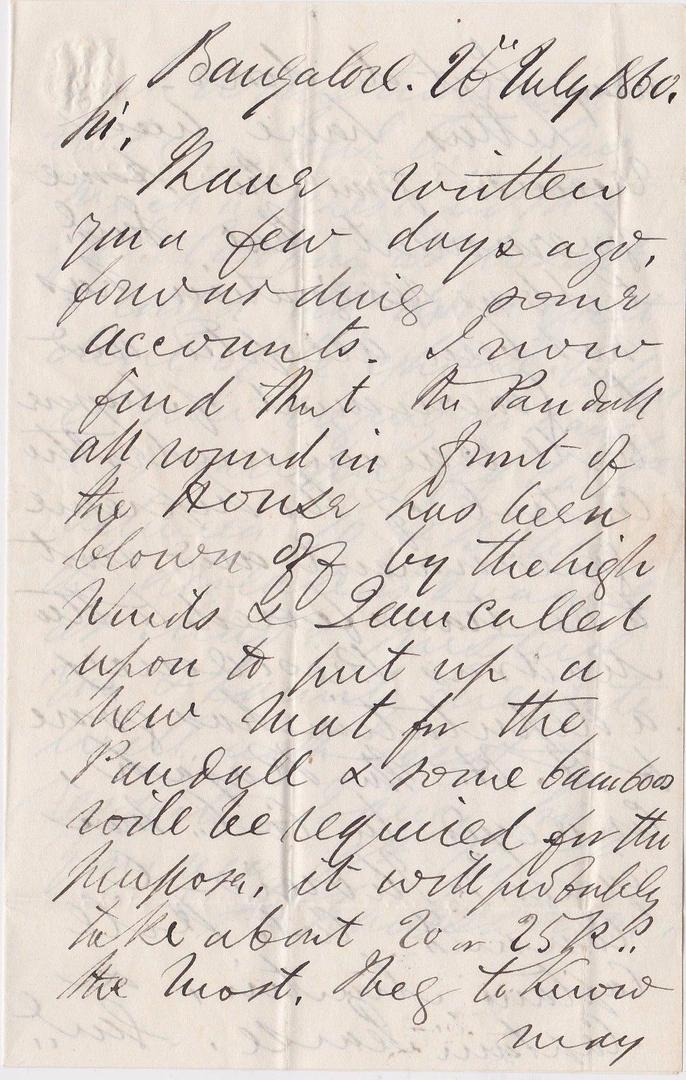 Bangalore. 26 July 1860.
Sir,
I have written
you a few days ago,
forwarding some
accounts. I now
find that the Pandall
all round in front of
the House has been
blown off by the high
winds & I am called
upon to put up a
new mat for the
Pandall & some bamboos
will be required for the
purpose, it will probably
take about 20 or 25 Rs.
the most. I beg to know
may